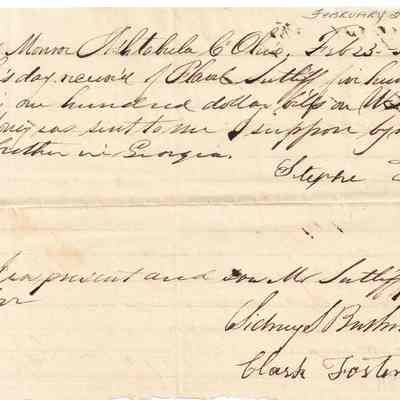 FEBRUARY 2
Monroe Ashtabula C Ohio, Feb 23
s day receivd of Plaul Sutliff five hun
in one hundred dollar bills on U
was sent to me I suppose by
brother in Georgia.
Stephe
I was present and saw Mr Sutliff
Sidney S Bushn
Clark Foster